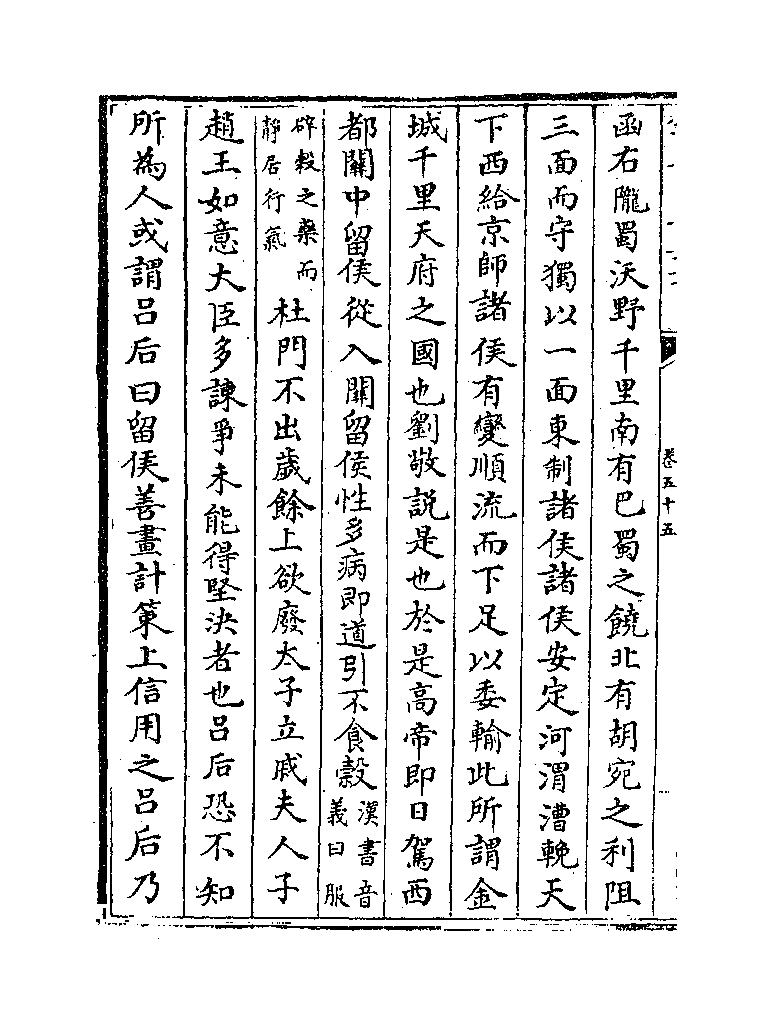 卷五十五
函右隴蜀沃野千里南有巴蜀之饒北有胡宛之利阻
三面而守獨以一面東制諸侯諸侯安定河渭漕輓天
下西給京師諸侯有變順流而下足以委輸此所謂金
城千里天府之國也劉敬説是也於是高帝即日駕西
都關中留侯從入關留侯性多病即道引不食穀漢書音義曰服
辟穀之藥而靜居行氣杜門不出歲餘上欲廢太子立戚夫人子
趙王如意大臣多諫爭未能得堅決者也呂后恐不知
所為人或謂呂后曰留侯善畫計策上信用之呂后乃